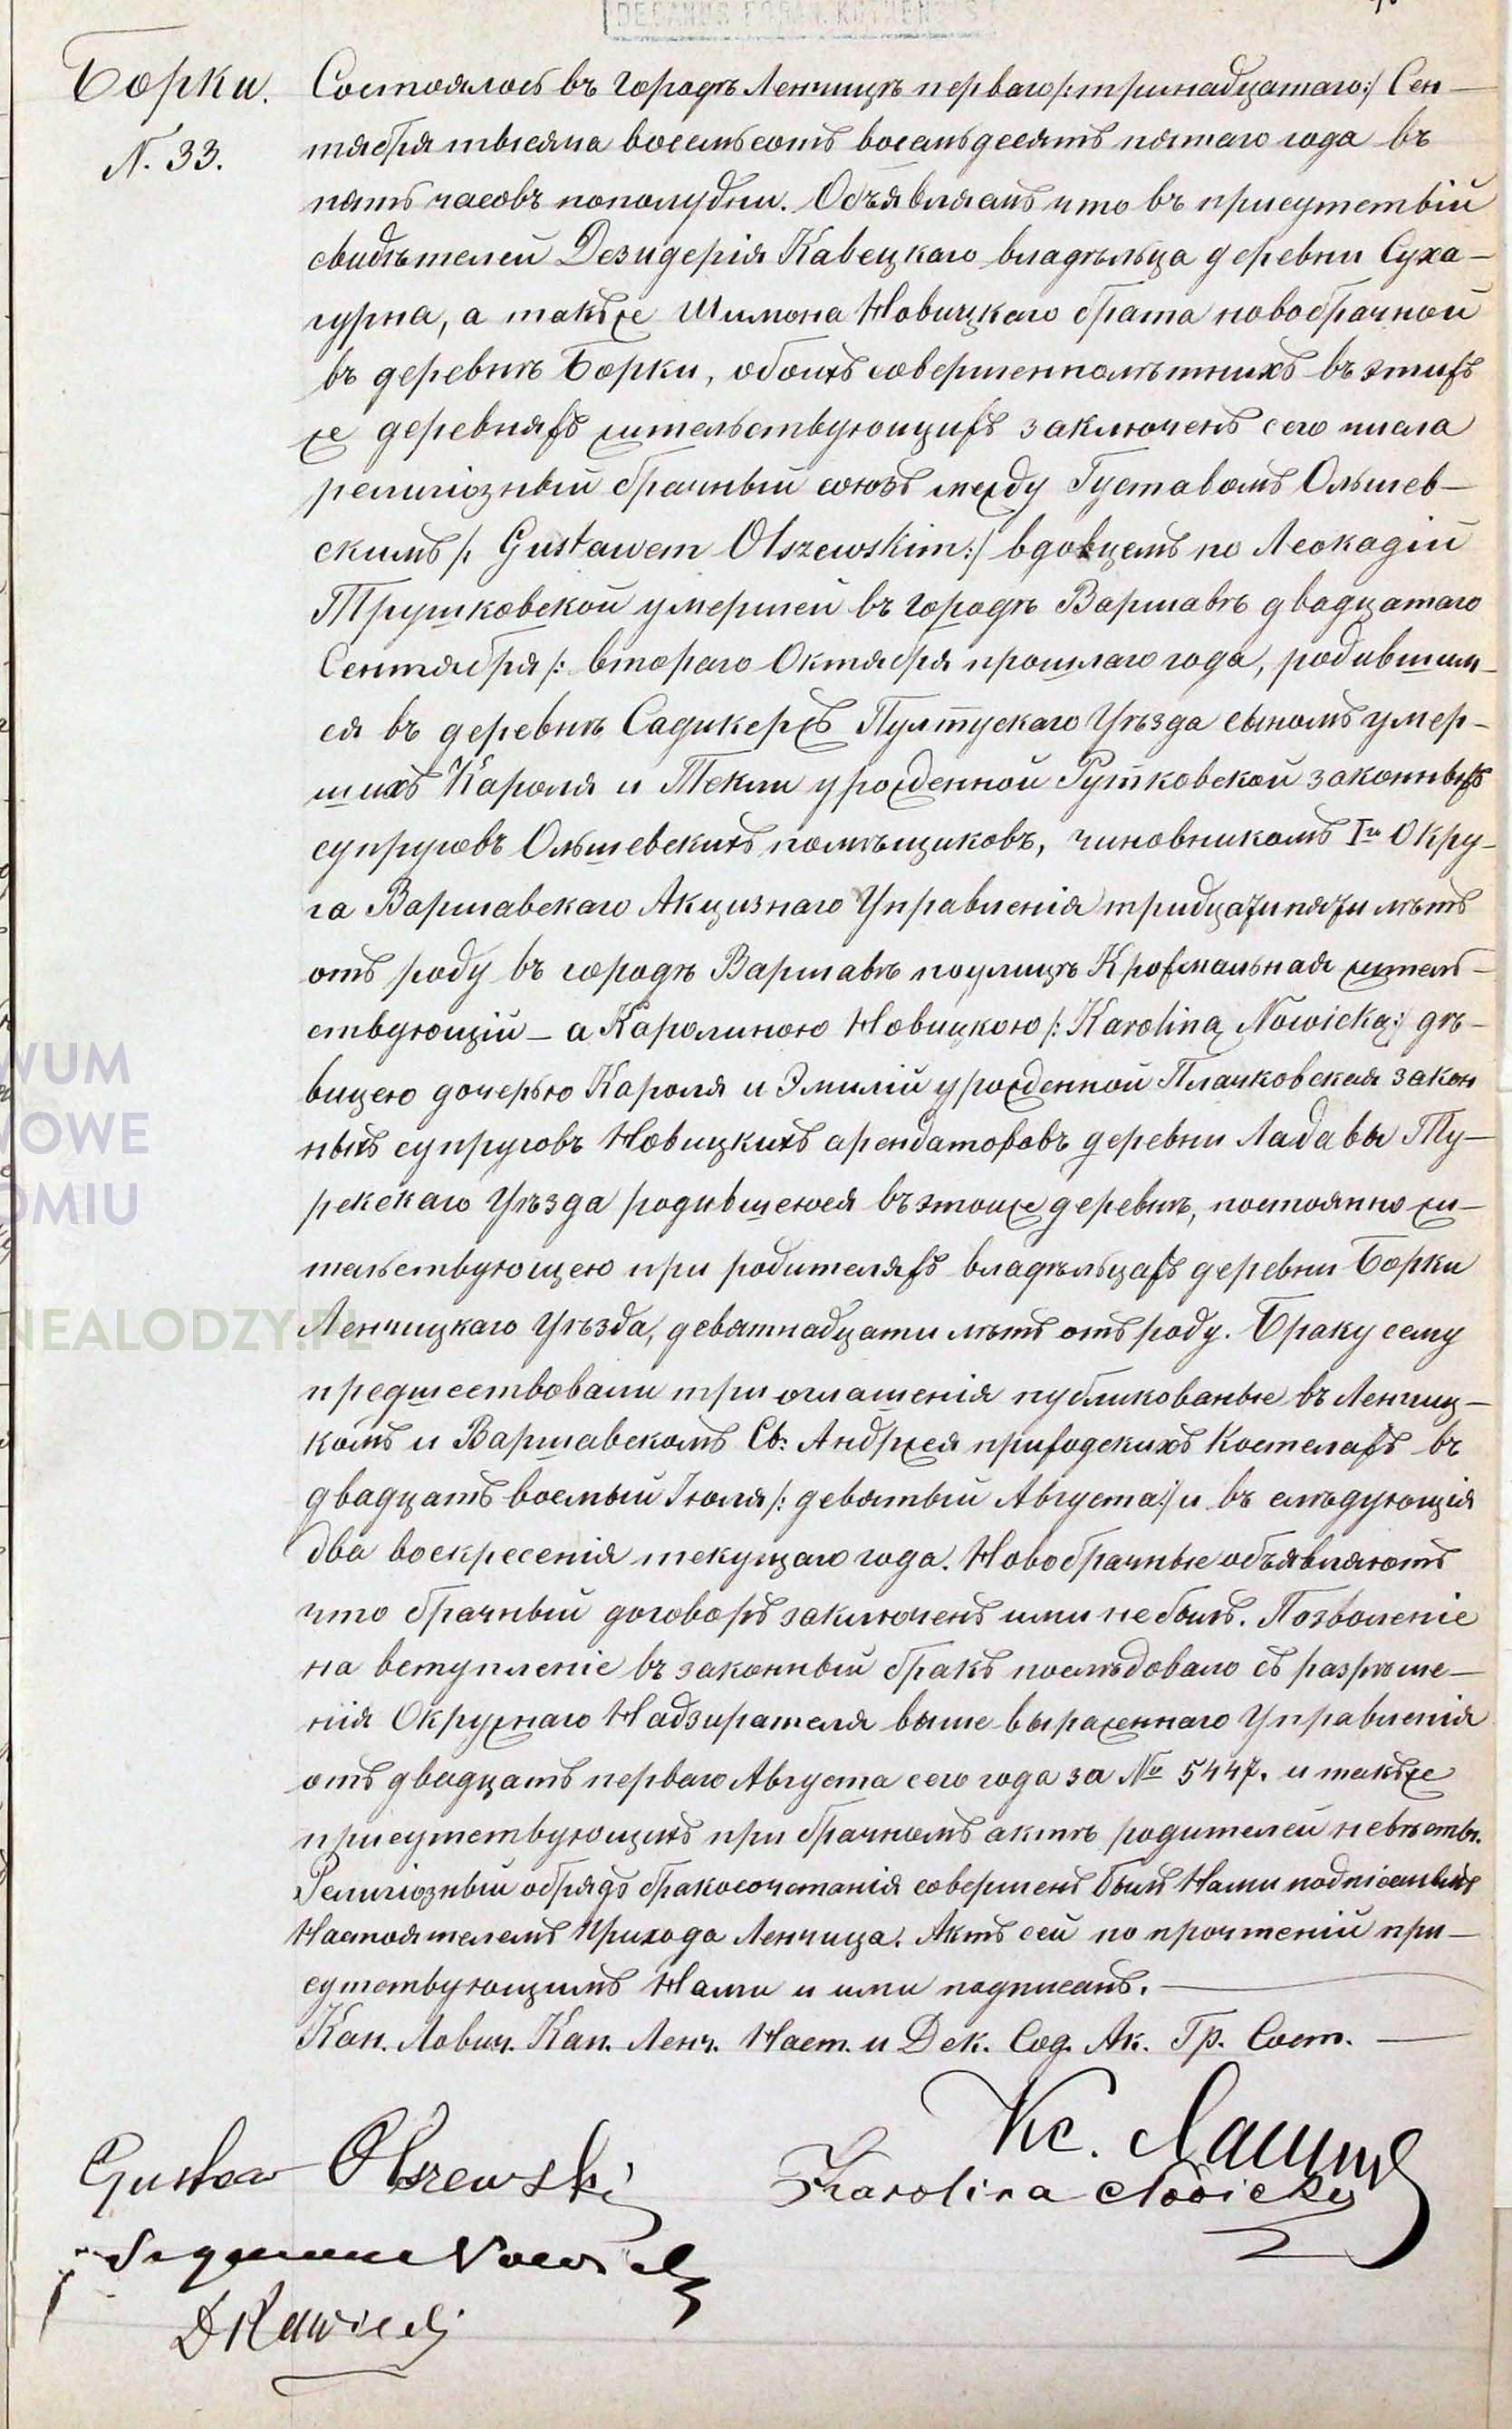 DECANUS FORAN. KUTNENSIS
Борки.
N. 33.
Состоялось въ городѣ Ленчицѣ перваго /: тринадцатаго:/ Сен—
тября тысяча восемьсотъ восемьдесятъ пятаго года въ
пять часовъ пополудни. Объявляемъ что въ присутствій
свидѣтелей Дезидерія Кавецкаго владѣльца деревни Суха—
гурна, а также Шимона Новицкаго брата новобрачной
въ деревнѣ Борки, обоихъ совершеннолѣтнихъ въ этихъ
же деревняхъ жительствующихъ заключенъ сего числа
религіозный брачный союзъ между Густавомъ Ольшев—
скимъ /: Gustawem Olszewskim:/ вдовцемъ по Леокадій
Трушковской умершей въ городѣ Варшавѣ двадцатаго
Сентября /: втораго Октября прошлаго года, родившим—
ся въ деревнѣ Садикержъ Пултускаго Уѣзда сыномъ умер—
шихъ Кароля и Текли урожденной Рутковской законныхъ
супруговъ Ольшевскихъ помѣщиковъ, чиновникомъ Iго Окру—
га Варшавскаго Акцизнаго Управленія тридцати пяти лѣтъ
отъ роду въ городѣ Варшавѣ по улицѣ Крохмальная житель—
ствующій — а Каролиною Новицкою /: Karoliną Nowicką:/ дѣ—
вицею дочерью Кароля и Эмилій урожденной Плачковская закон
ныхъ супруговъ Новицкихъ арендаторовъ деревни Ладавы Ту—
рекскаго Уѣзда родившеюся въ этойже деревнѣ, постоянно жи—
тельствующею при родителяхъ владѣльцахъ деревни Борки
Ленчицкаго Уѣзда, девятнадцати лѣтъ отъ роду. Браку сему
предшествовали три оглашенія публикованые въ Ленчиц—
комъ и Варшавскомъ Св: Андржея приходскихъ Костелахъ въ
двадцать восьмый Іюля /: девятый Августа:/ и въ слѣдующія
два воскресенія текущаго года. Новобрачные объявляютъ
что брачный договоръ заключенъ ими не былъ. Позволеніе
на вступленіе въ законный бракъ послѣдовало съ разрѣше—
нія Окружнаго Надзирателя выше выраженнаго Управленія
отъ двадцать перваго Августа сего года за № 5447. и также
присутствующихъ при брачномъ актѣ родителей невѣсты.
Религіозный обрядъ бракосочетанія совершенъ былъ Нами подписаннымъ
Настоятелемъ Прихода Ленчица. Актъ сей по прочтеній при—
сутствующимъ Нами и ими подписанъ. —
Кан. Лович. Кап. Ленч. Наст. и Дек. Сод. Ак. Гр. Сост. —
Кс.
Gustaw Olszewski
Karolina Nowicka
D Kawiecki